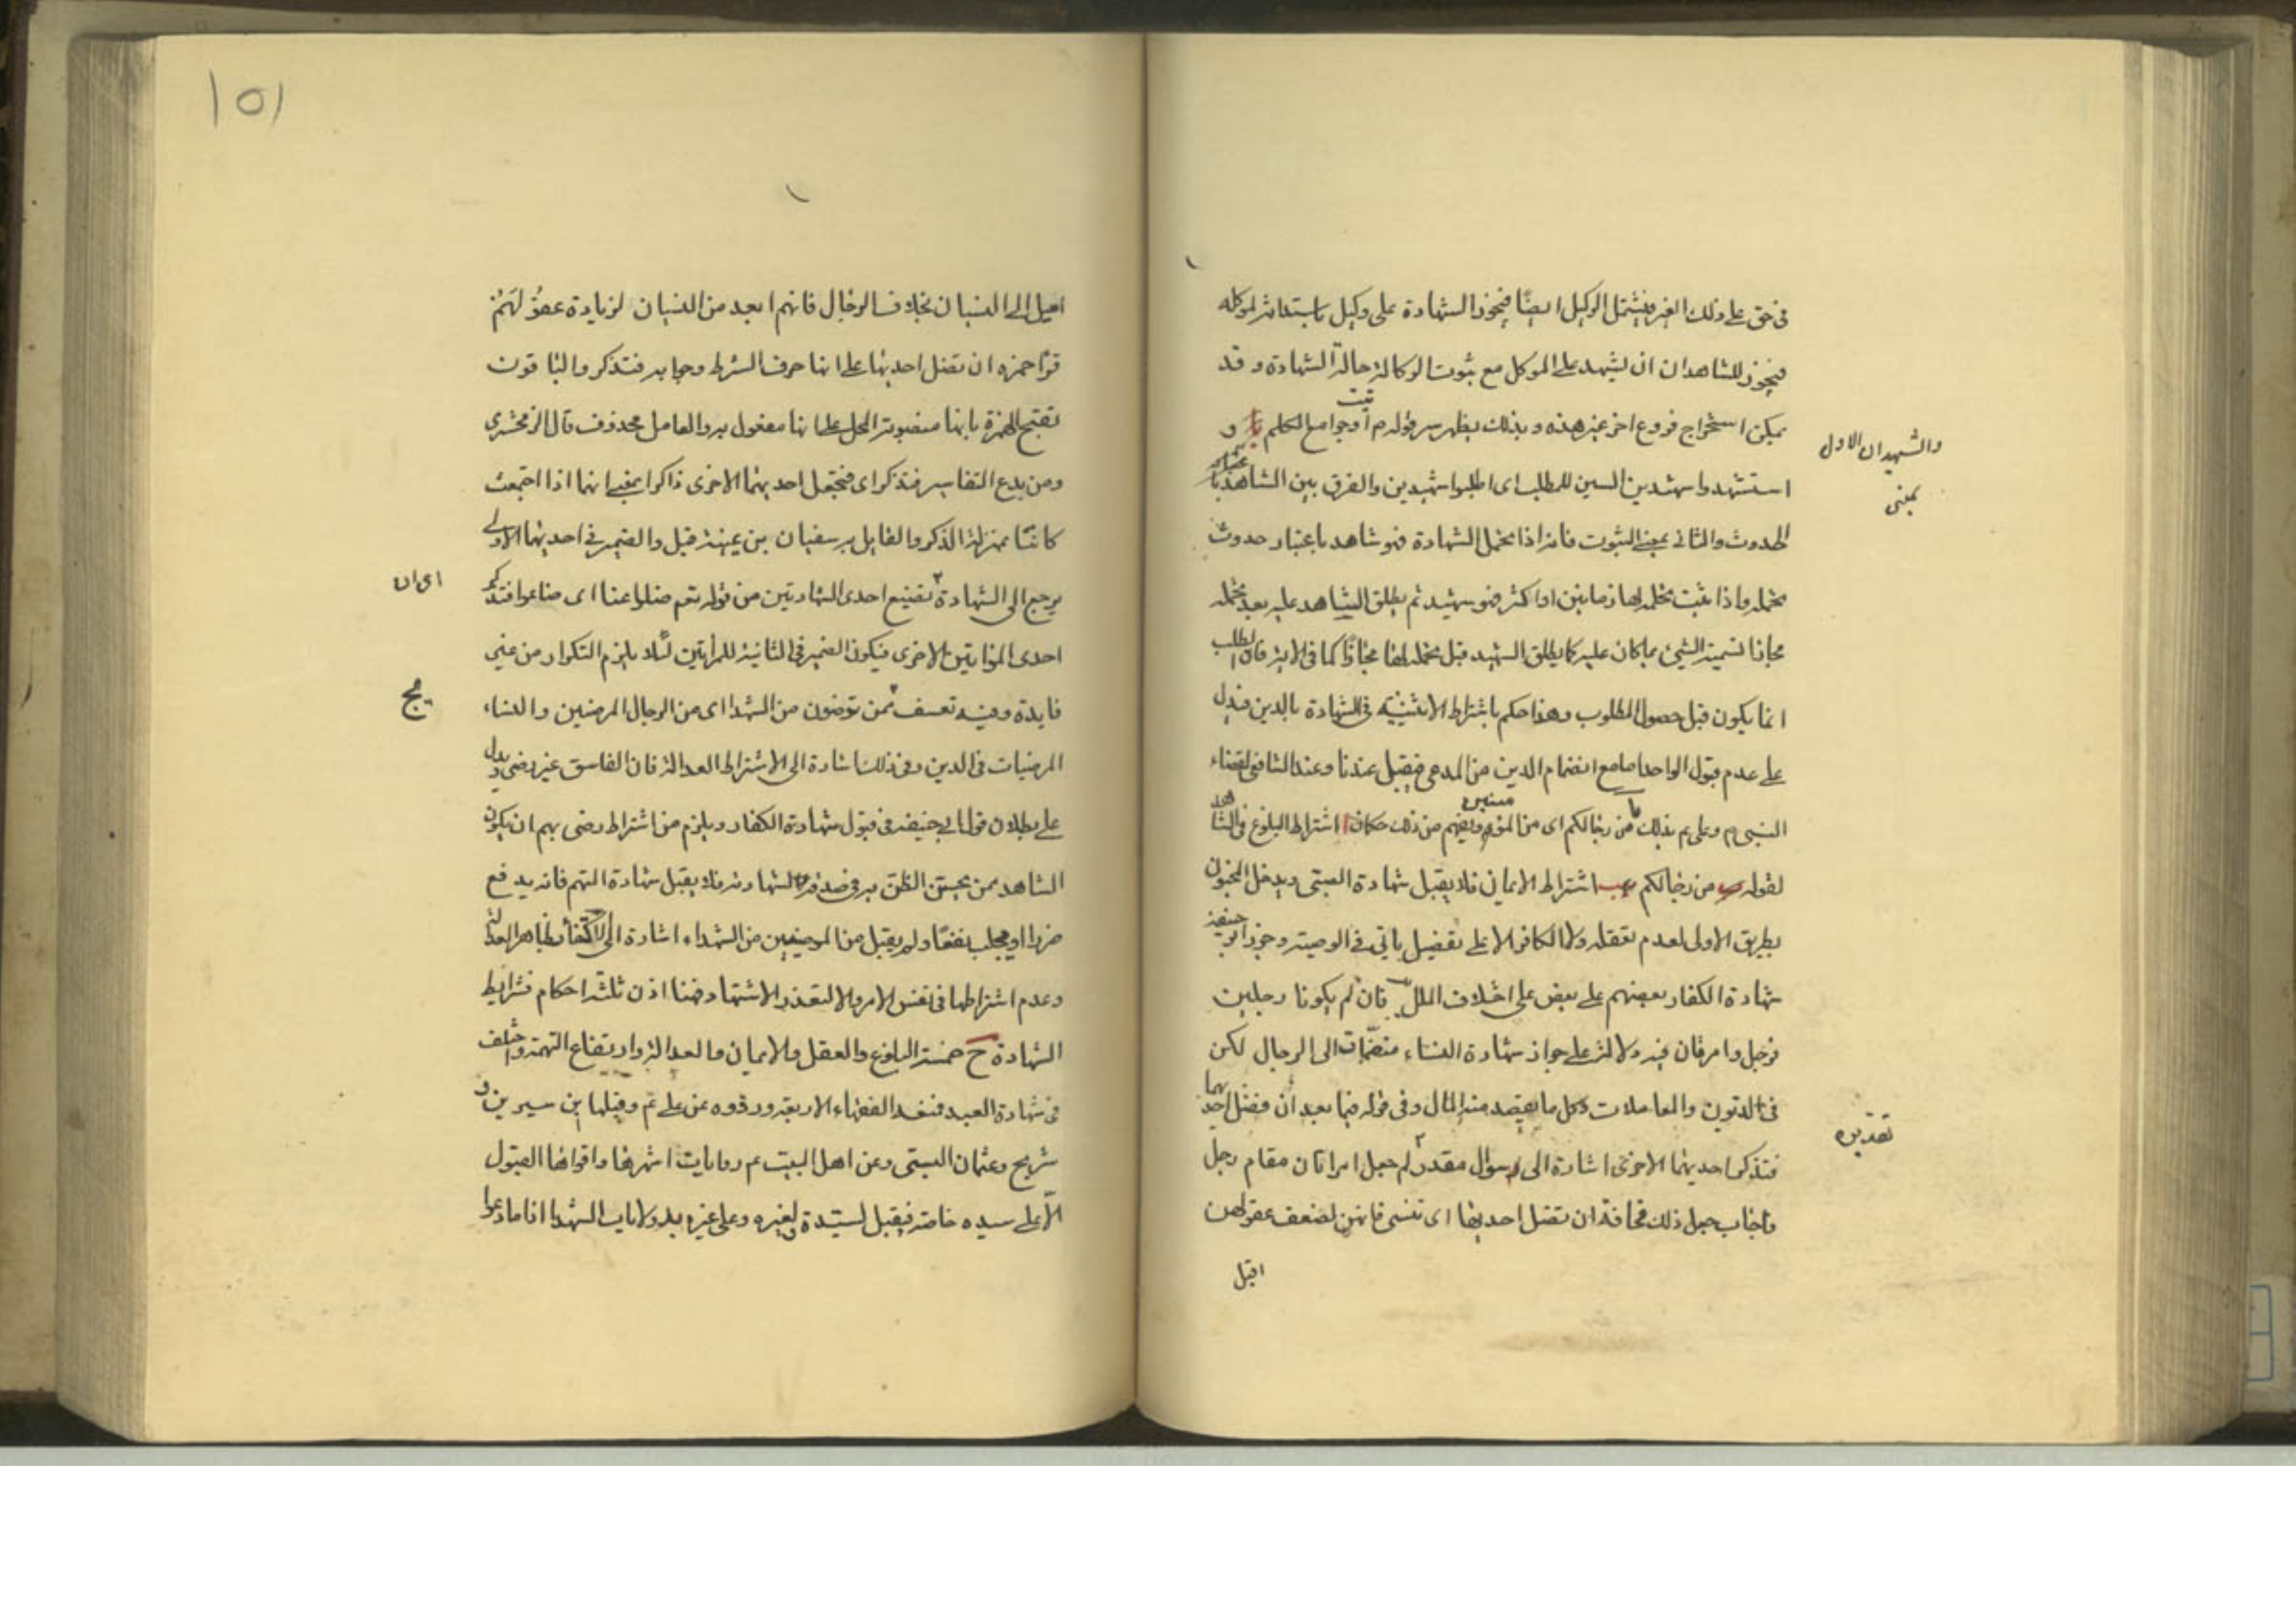 في حق على ذلك الغير فيشمل الوكيل ايضًا فيجوز الشهادة على وكيل باستدانة لموكله
فيجوز للشاهدان ان يشهد على الموكل مع ثبوت الوكالة حالة الشهادة و قد
يمكن استخراج فروع اخر غير هذه و بذلك يظهر سر قوله م أوتيت جوامع الكلم يا و
والشهيدان الاول بمعنى
استشهدوا شهيدين السين للطلب اى اطلبوا شهيدين والفرق بين الشاهد باعتبار
الحدوث والثانى بمعنى الثبوت فانه اذا تحمل الشهادة فهو شاهد باعتبار حدوث
تحمله واذا ثبت تحمله لها زمانين او اكثر فهو شهيد ثم يطلق الشاهد عليه بعد تحمله
مجازا تسمية الشئ بما كان عليه كما يطلق الشهيد قبل تحمله لها مجازًا كما فى الاية فان الطلب
انما يكون قبل حصول المطلوب وهذا حكم باشتراط الاثنينية فى الشهادة بالدين فيدل
على عدم قبول الواحد اما مع انضمام اليمين من المدعى فيقبل عندنا وعند الشافعى لقضاء
النبى م وعلى ع بذلك من رجالكم اى من المؤمنين ويفهم من ذلك حكمان ا اشتراط البلوغ فى الشاهد
لقوله من رجالكم ب اشتراط الايمان فلا يقبل شهادة الصبى ويدخل المجنون
بطريق الاولى لعدم تعقله ولا الكافر الا على تفصيل ياتى فى الوصية وجوز ابو حنيفة
شهادة الكفار بعضهم على بعض على اختلاف الملل فان لم يكونا رجلين
فرجل وامرأتان فيه دلالة على جواز شهادة النساء منضمّات الى الرجال لكن
فى الديون والمعاملات وكل ما يقصد منه المال وفى قوله فيما بعد أن تضل احديهما
فتذكر احديهما الاخرى اشارة الى سؤال مقدر لم جعل امراتان مقام رجل
تقديره
واجاب جعل ذلك مخافة ان تضل احديهما اى تنسى فانهن لضعف عقولهن
اميل
١٥١
اميل الى النسيان بخلاف الرجال فانهم ابعد من النسيان لزيادة عقولهم
قرأ حمزه ان تضل احديهما على انها حرف الشرط وجوابه فتذكر والباقون
بفتح الهمزة بانها منصوبة المحل على انها مفعول به والعامل محذوف قال الزمخشرى
ومن بدع التفاسير فتذكر اى فتجعل احديهما الاخرى ذاكرا يعنى انهما اذا اجتمعت
كانتا بمنزلة الذكر والقايل به سفيان بن عيينة قيل والضمير فى احديهما الاولى
يرجع الى الشهادة تضييع احدى الشهادتين من قوله تعم ضلوا عنا اى ضاعوا فتذكر
اى ان
احدى المراتين الاخرى فيكون الضمير فى الثانية للمراتين لئلا يلزم التكرار من غير
فايدة وفيه تعسف ممن ترضون من الشهدا اى من الرجال المرضيين والنساء
يج
المرضيات فى الدين وفى ذلك اشارة الى الاشتراط العدالة فان الفاسق غير رضى ويدل
على بطلان قول ابى حنيفة فى قبول شهادة الكفار ويلزم من اشتراط رضى بهم ان يكون
الشاهد ممن يحسن الظن به فى صدق الشهادة فلا يقبل شهادة المتهم فانه يدفع
ضررا او يجلب نفعًا ولم يقبل من المرضيين من الشهداء اشارة الى الاكتفا بظاهر العدالة
وعدم اشتراطها فى نفس الامر والا لتعذر الاشتهاد فهنا اذن ثلثة احكام فشرايط
الشهادة ح خمسة البلوغ والعقل والايمان والعدالة وارتفاع التهمة واختلف
فى شهادة العبد فمنعه الفقهاء الاربعة ورووه عن على ع وقبلها ابن سيرين و
شريح وعثمان البستى وعن اهل البيت ع روايات اشهرها واقواها القبول
الّا على سيده خاصة فيقبل لسيّده ولغيره وعلى غيره يد ولا ياب الشهدا اذا ما دعوا